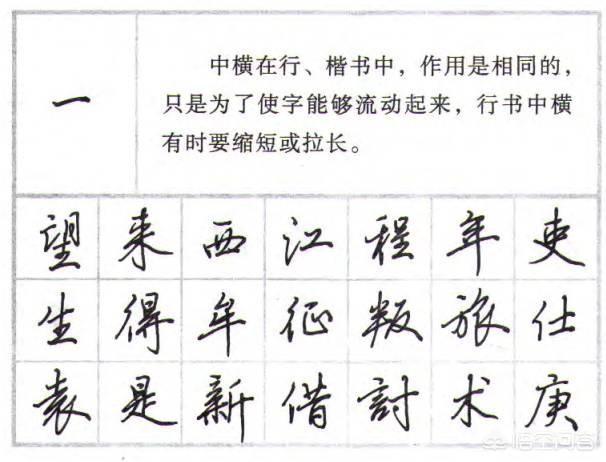 一
中横在行、楷书中，作用是相同的，
只是为了使字能够流动起来，行书中横
有时要缩短或拉长。
望来西江程年吏
生得牟征叛旅仕
袁是新借討术庚
悟空问答